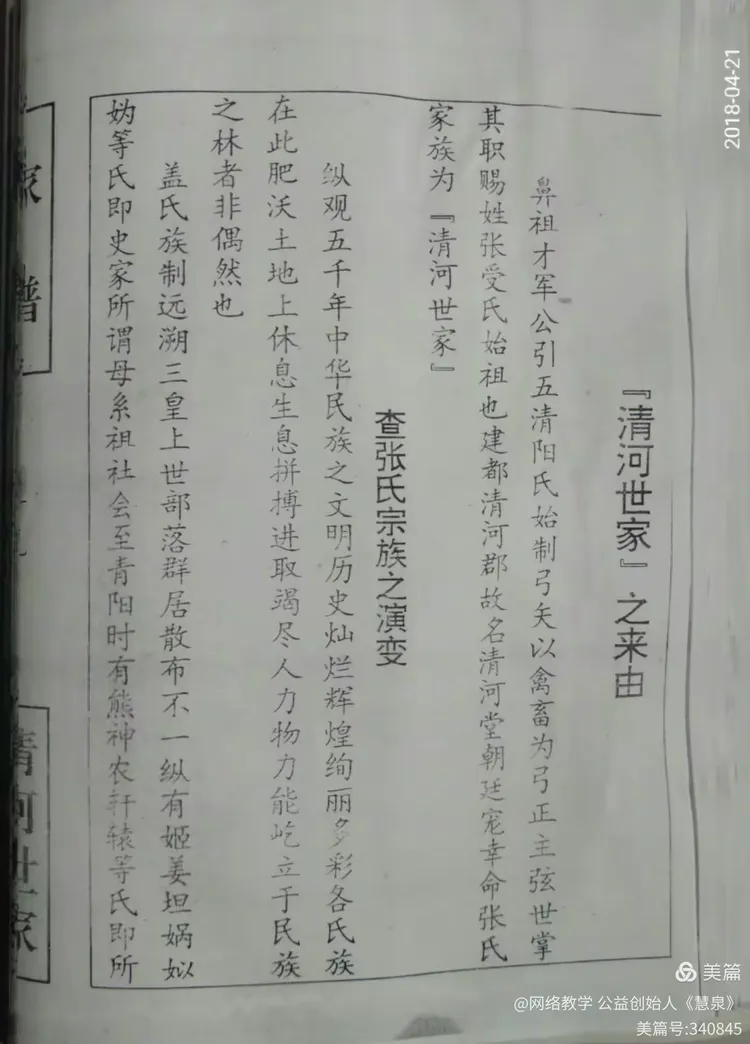 『清河世家』之来由
鼻祖才军公引五清阳氏始制弓矢以禽畜为弓正主弦世掌
其职赐姓张受氏始祖也建都清河郡故名清河堂朝廷宠幸命张氏
家族为『清河世家』
查张氏宗族之演变
纵观五千年中华民族之文明历史灿烂辉煌绚丽多彩各氏族
在此肥沃土地上休息生息拼搏进取竭尽人力物力能屹立于民族
之林者非偶然也
盖氏族制远溯三皇上世部落群居散布不一纵有姬姜坦娲姒
妫等氏即史家所谓母系祖社会至青阳时有熊神农轩辕等氏即所
家谱
清河世家
2018-04-21
美篇
@网络教学 公益创始人《慧泉》
美篇号:340845